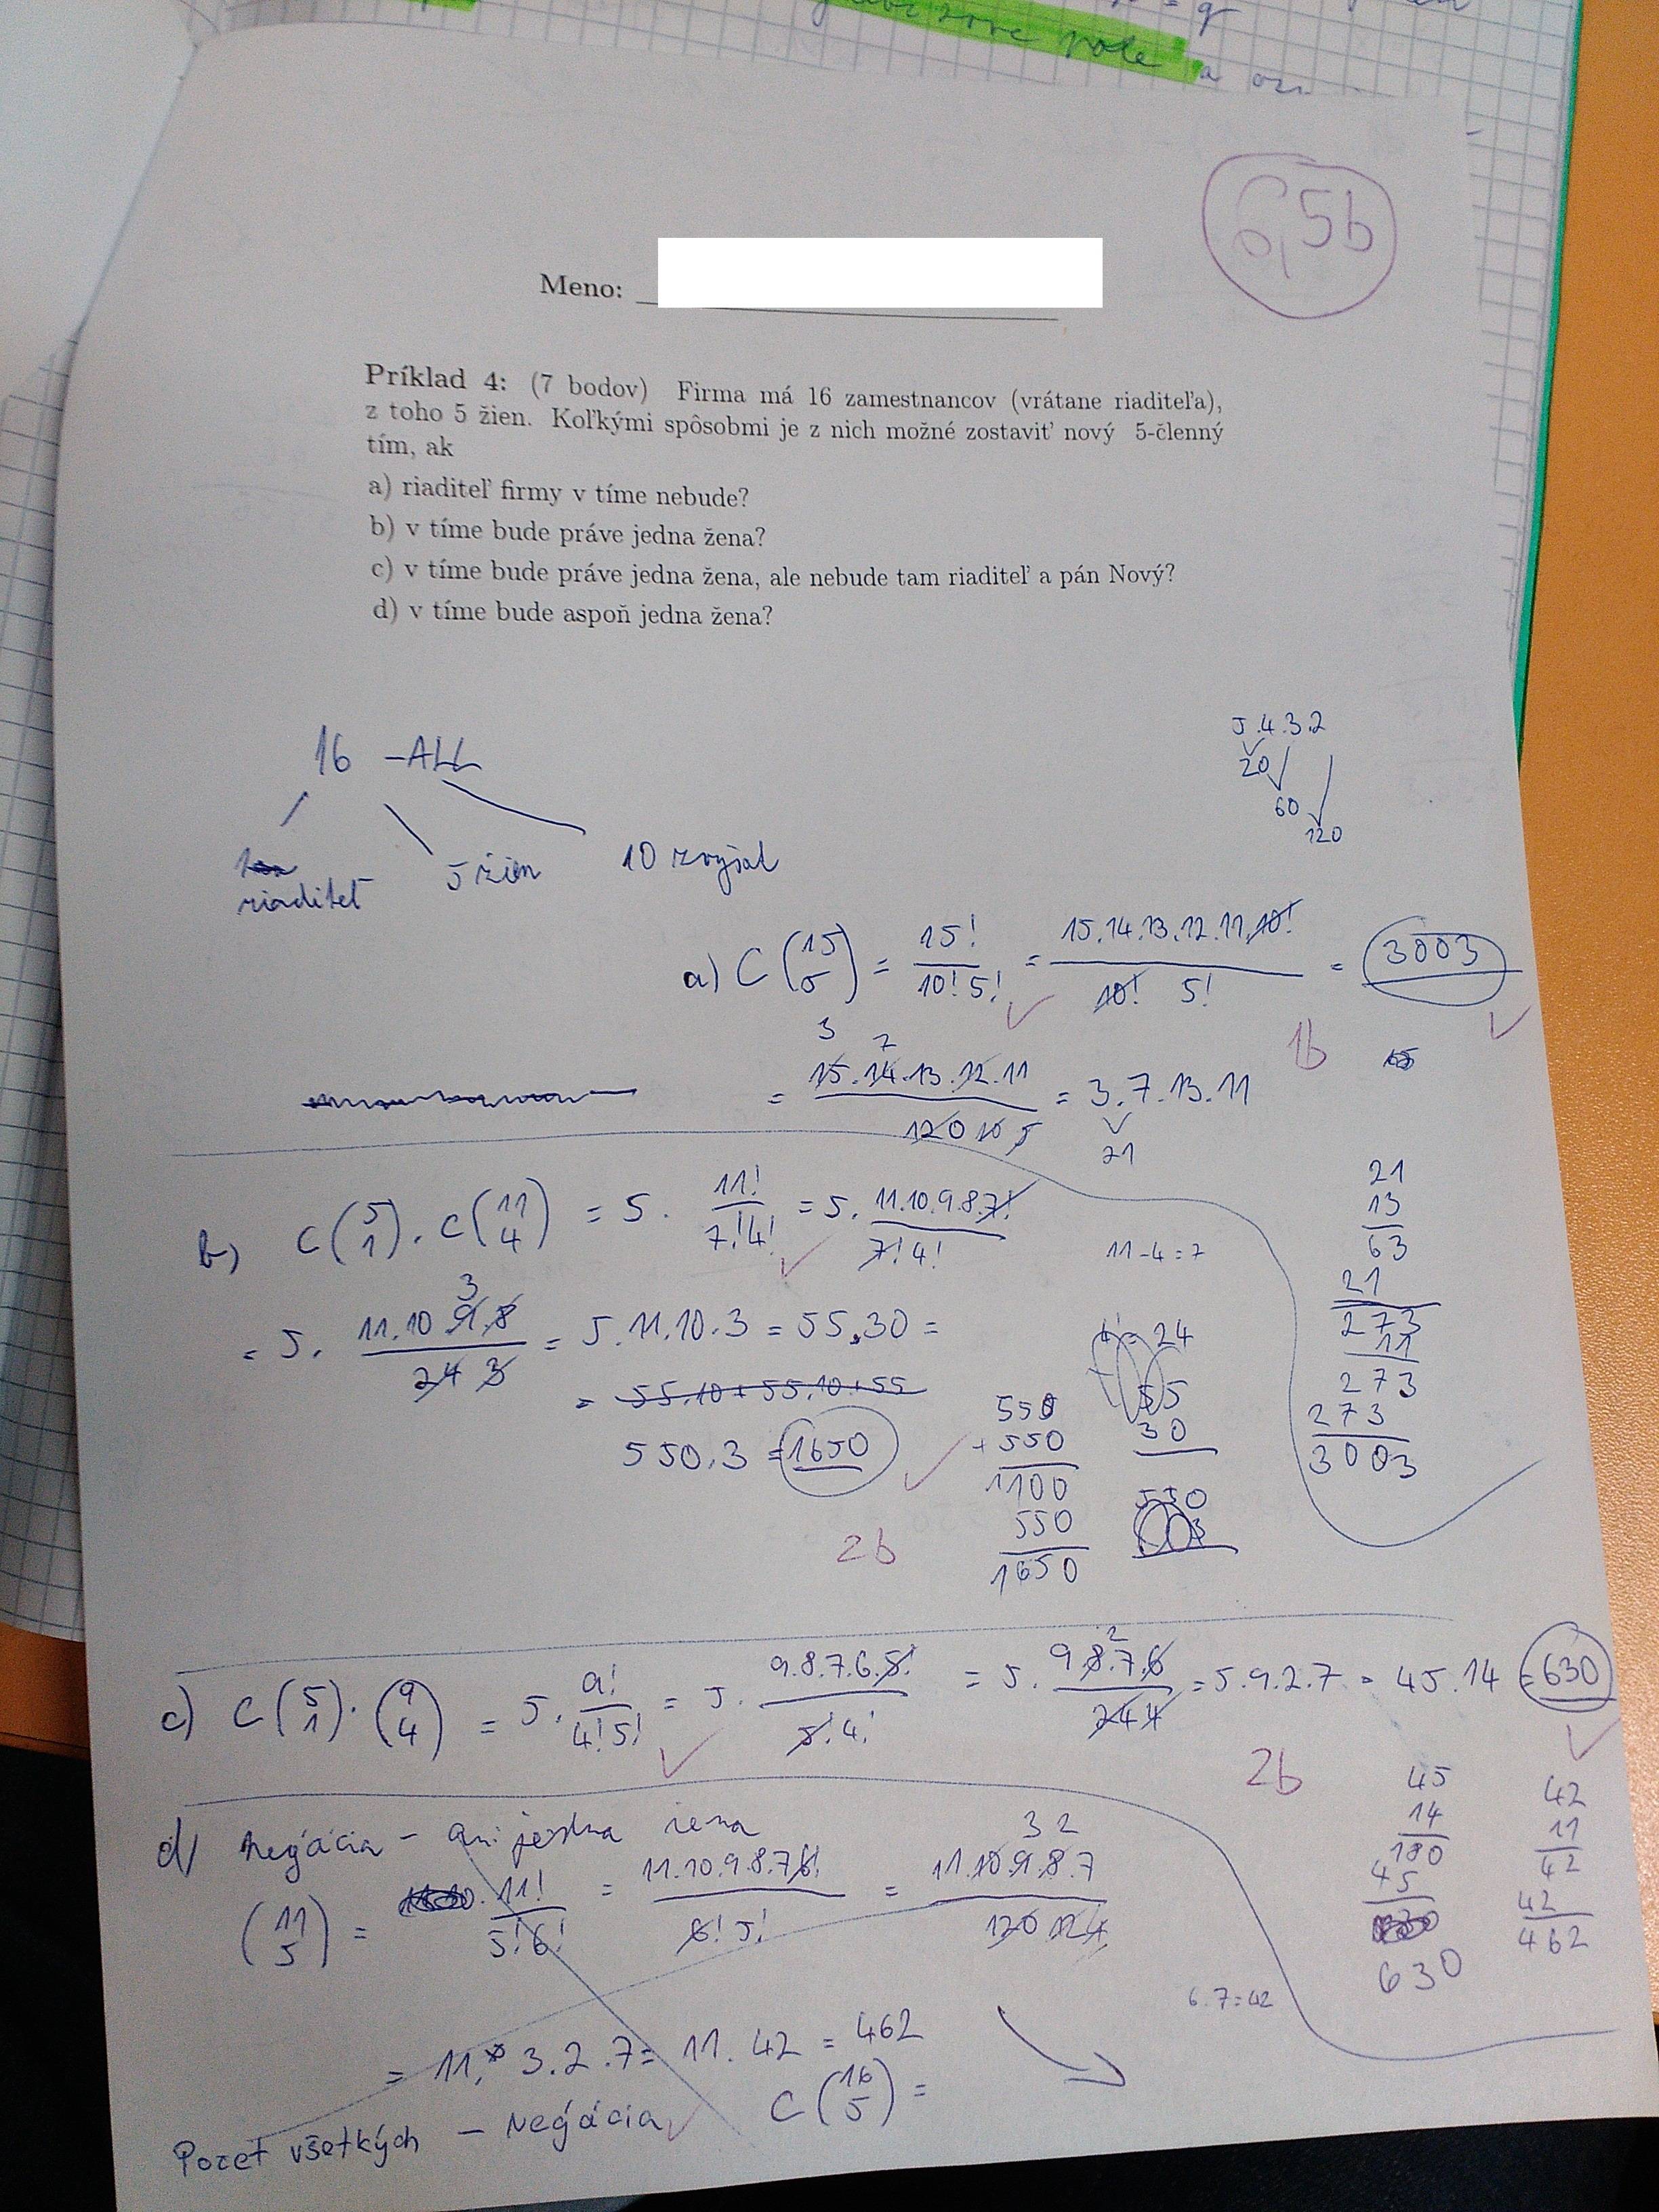 zove pole a
6,5b
Meno:
Príklad 4: (7 bodov) Firma má 16 zamestnancov (vrátane riaditeľa),
z toho 5 žien. Koľkými spôsobmi je z nich možné zostaviť nový 5-členný
tím, ak
a) riaditeľ firmy v tíme nebude?
b) v tíme bude práve jedna žena?
c) v tíme bude práve jedna žena, ale nebude tam riaditeľ a pán Nový?
d) v tíme bude aspoň jedna žena?
16 - ALL
5.4.3.2
20
60
120
riaditeľ 5 žien 10 zvyšok
a) C(15 5) = 15!/10!5! = 15.14.13.12.11.10!/10! 5! = 3003
1b
3 7
= 15.14.13.12.11/120 10 5 = 3.7.13.11
21
21
13
63
21
273
11
273
273
3003
b) C(5 1) . C(11 4) = 5 . 11!/7!4! = 5 . 11.10.9.8.7!/7!4!
11-4=7
3
= 5 . 11.10 9.8/24 3 = 5.11.10.3 = 55.30 =
4! = 24
= 55.10+55.10+55
55
30
550.3 = 1650
550
+550
1100
550
1650
530
3
2b
c) C(5 1) . (9 4) = 5 . 9!/4!5! = 5 . 9.8.7.6.5!/5!4! = 5 . 9.8.7.6/24 4 = 5.9.2.7 = 45.14 = 630
2
2b
45
14
180
45
630
42
11
42
42
462
d) Negácia - ani jedna žena
3 2
(11 5) = 11!/5!6! = 11.10.9.8.7.6!/6! 5! = 11.10.9.8.7/120 12 4
6.7=42
= 11. 3.2.7 = 11.42 = 462
Počet všetkých - Negácia C(16 5) =